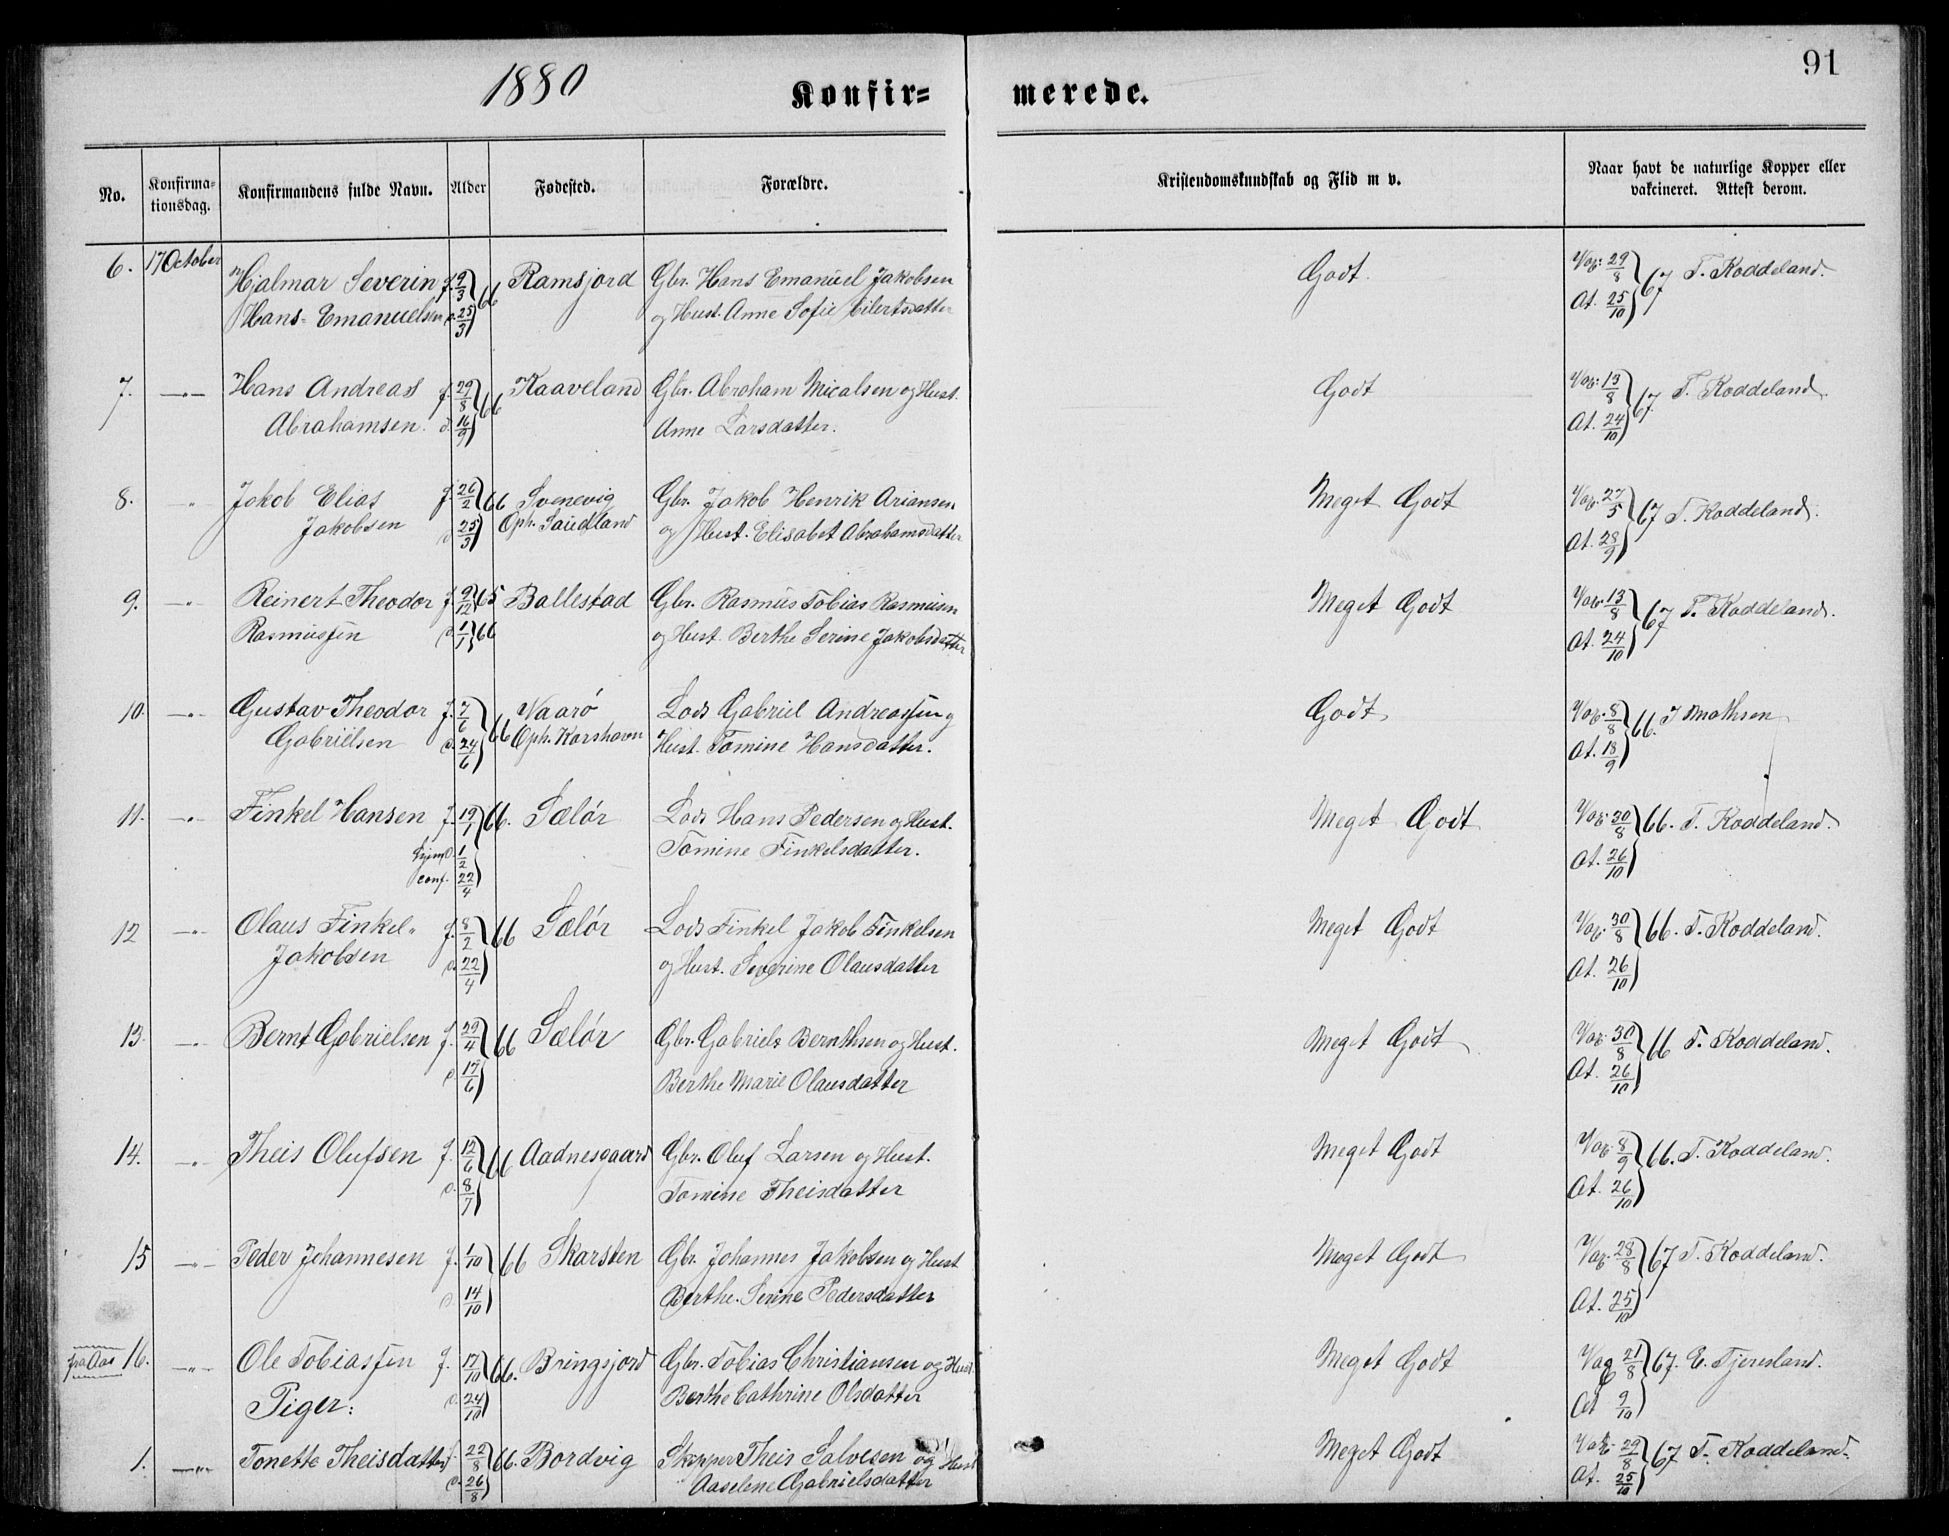 1880 Konfir= merede. 91
No. Konfirma-tionsdag. Konfirmandens fulde Navn. Alder Fødested. Forældre. Kristendomskundskab og Flid m v. Naar havt de naturlige Kopper eller vakcineret. Attest derom.
6. 17 October Hjalmar Severin f. 9/3 66 Ramsjord Gbr. Hans Emanuel Jakobsen Godt. Vac. 29/8 67 T. Koddeland.
Hans Emanuelsen d. 25/3 og Hust. Anne Sofie Eilertsdatter At. 25/10
7. —„— Hans Andreas f. 29/8 66 Kaaveland Gbr. Abraham Micalsen og Hust. Godt Vac. 13/8 67. T. Koddeland.
Abrahamsen. d. 16/9 Anne Larsdatter. At. 24/10
8. „ Jakob Elias f. 26/2 66 Svenevig Gbr. Jakob Henrik Ariansen Meget Godt Vac. 27/5 67 T. Koddeland.
Jakobsen d. 25/3 Oph. Saudland og Hust. Elisabet Abrahamsdatter At. 28/9
9. —„— Reinert Theodor f. 9/12 65 Ballestad Gbr. Rasmus Tobias Rasmusen Meget Godt Vac. 13/8 67 T. Koddeland.
Rasmussen d. 1/1 66 og Hust. Berthe Serine Jakobsdatter At. 24/10
10. —„— Gustav Theodor f. 7/6 66 Vaarø Lods Gabriel Andreassen og Godt Vac. 8/8 66. J Mathsen
Gabrielsen d. 24/6 Oph. Korshavn Hust. Tomine Hansdatter. At. 18/9
11. —„— Finkel Hansen f. 19/1 66. Sælør Lods Hans Pedersen og Hust. Meget Godt Vac. 30/8 66. T. Koddeland.
hjemd. 1/2 Tomine Finkelsdatter. At. 26/10
conf. 22/4
12 —„— Olaus Finkel f. 8/2 66 Sælør Lods Finkel Jakob Finkelsen Meget Godt Vac. 30/8 66. T. Koddeland.
Jakobsen d. 22/4 og Hust. Severine Olausdatter At. 26/10
13. —„— Bernt Gabrielsen f. 29/4 66 Sælør Gbr. Gabriel Bernthsen og Hust. Meget Godt Vac. 30/8 66 T. Koddeland.
d. 17/6 Berthe Marie Olausdatter At. 26/10
14. —„— Theis Olufsen f. 12/6 66 Aadnesgaard Gbr. Oluf Larsen og Hust. Meget Godt Vac. 8/9 66. T. Koddeland.
d. 8/7 Tomine Theisdatter At. 26/10
15 —„— Peder Johannesen f. 1/10 66 Skarsten Gbr. Johannes Jakobsen og Hust Meget Godt Vac. 28/8 67 T. Koddeland.
d. 14/10 Berthe Serine Pedersdatter At. 25/10
fra Aas 16. —„— Ole Tobiassen f. 17/10 66. Bringsjord Gbr. Tobias Christiansen og Hust Meget Godt Vac 21/8 67. E. Tjersland.
d. 24/10 Berthe Cathrine Olsdatter At 9/10
Piger:
1. —„— Tonette Theisdatter f. 22/8 66. Bordvig Skipper Theis Salvesen og Hust Meget Godt Vac. 29/8 67 T. Koddeland.
d. 26/8 Aaselene Gabrielsdatter At. 25/10